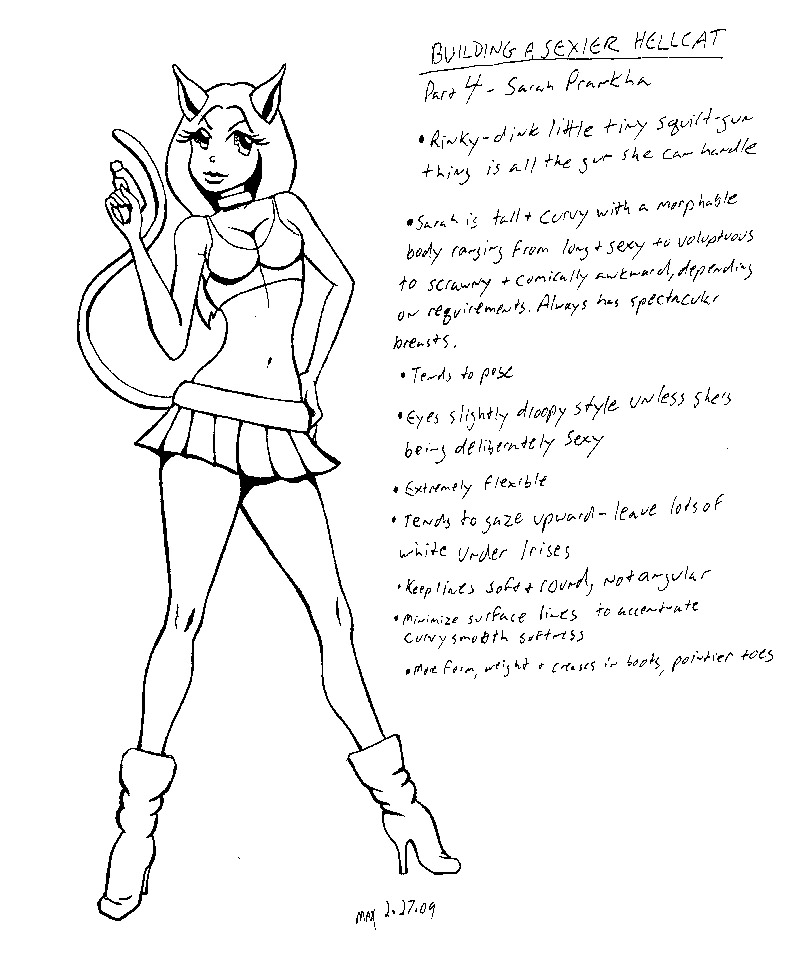 BUILDING A SEXIER HELLCAT
Part 4 - Sarah Prankha
• Rinky-dink little tiny squirt-gun
thing is all the gun she can handle
• Sarah is tall + curvy with a morphable
body ranging from long + sexy to voluptuous
to scrawny + comically awkward, depending
on requirements. Always has spectacular
breasts.
• Tends to pose
• Eyes slightly droopy style unless she's
being deliberately sexy
• Extremely flexible
• Tends to gaze upward - leave lots of
white under irises
• Keep lines soft + round, not angular
• Minimize surface lines to accentuate
curvy smooth softness
• More form, weight + creases in boots, pointier toes
MAX 2.27.09